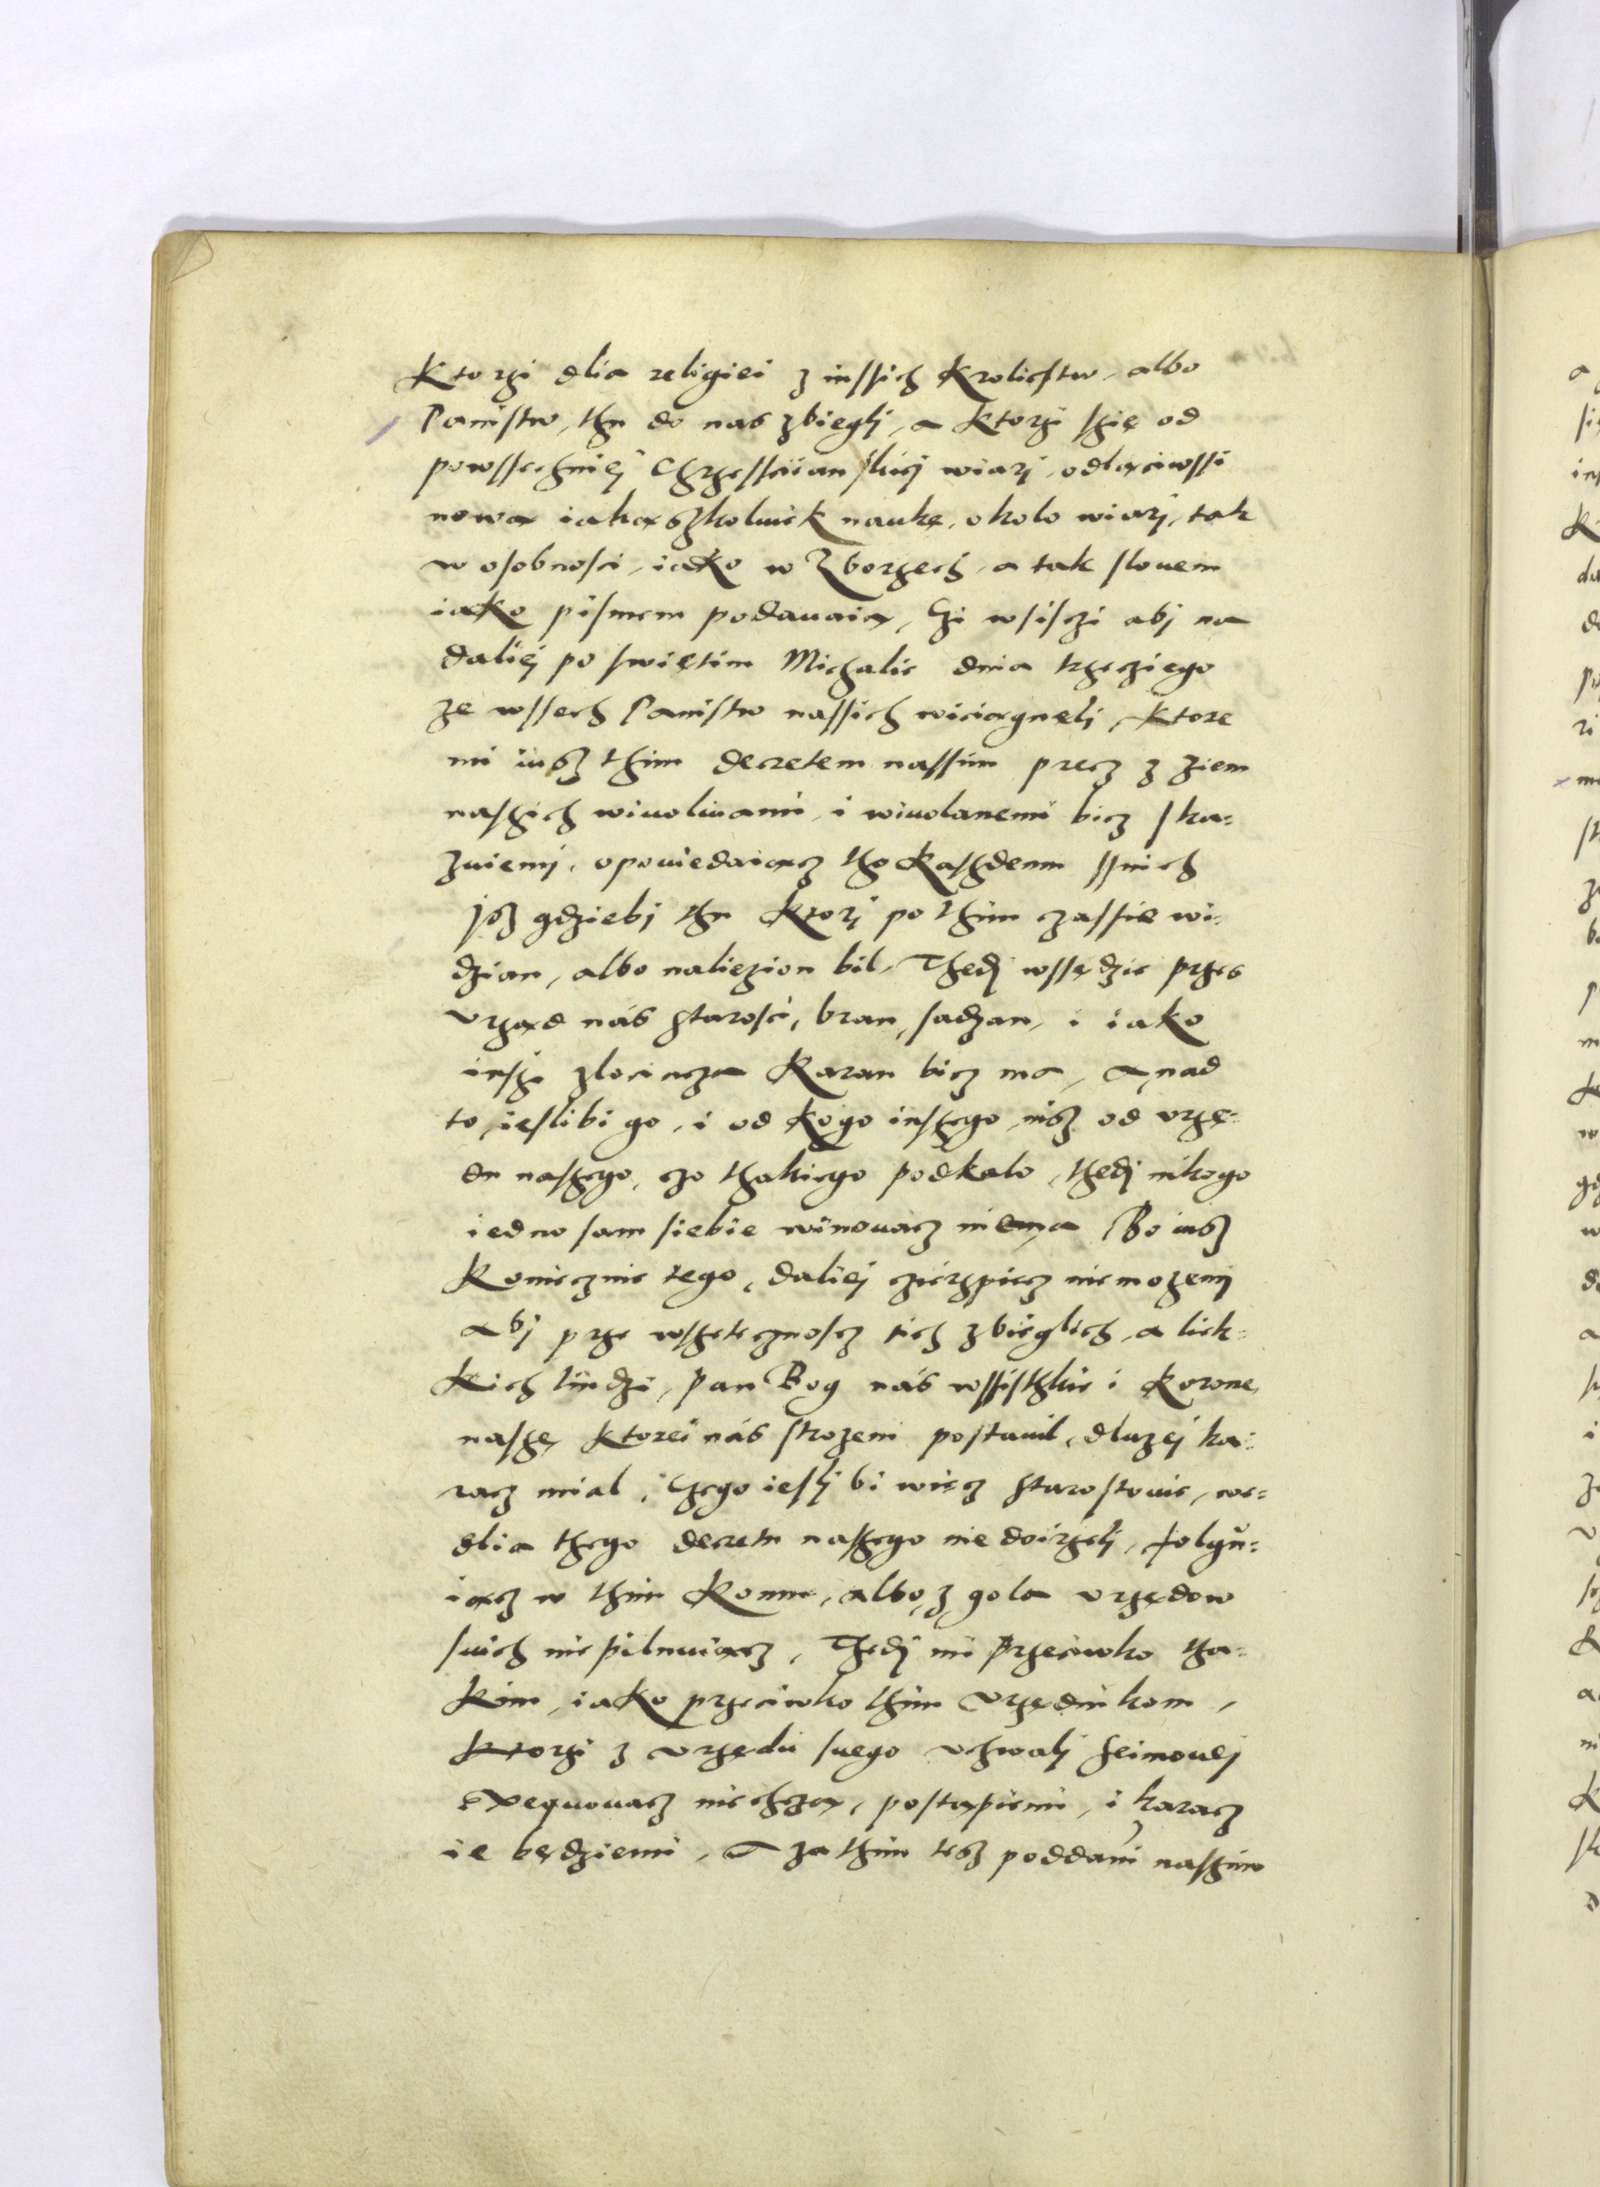 Ktorzi dlia religiei z inssich Krolichstw, albo
Panistw, thu do nas zbiegli, a Ktorzi szię od
powssechniej Chrzessciianskiej wiarj, odlącziwssi
nową iakąszkolwiek naukę, okolo wiarj, tak
w osobnosci, iako w Zborzech, a tak slovem
iako pismem podavaią, Czi wsisczi abj na
daliej po swiętim Michalie dnia trzecziego
ze wssech Panistw nassich wiciągnęli, Ktore
mi iusz thim decretem nassim precz z ziem
naszich wivoliwami, i wivolanemi bicz ska-
zuiemj, opoviedaiącz tho Kaszdemu ssnich
jsz gdziebj thu Ktorj po thim czassie wi-
dzian, albo naliezion bil, Thedj wssędzie przes
vrząd nás starosci, bran, sadzan, i iako
inszi zlocincza Karan bicz ma, a nad
to, ieslibi go, i od Kogo inszego nisz od vrzę-
du naszego, czo thakiego podkalo, thedj nikogo
iedno sam siebie winovacz niema Bo iusz
Koniecznie tego, daliej czierzpiecz niemozemj
Abj prze wszetecznoscz tich zbieglich, a liek-
Kich liudzi, Pan Bog nás wssisthkie i Koronę
naszę Ktorei nás strozem postavil, dluzej ka-
racz mial, Czego iesli bi więcz starostovie, we-
dlia thego decretu naszego nie doirzeli, folgu-
iącz w thim Komu, albo z gola vrzędow
swich nie pilnuiącz, Thedj mi Przeciwko tha-
Kim, iako przeciwko thim Vrzędnikom,
Ktorzi z vrzędu swego vchwalj seimovej
exequovacz niechczą, postąpiemi, i karacz
ie będziemi, A zathim tesz poddani naszim